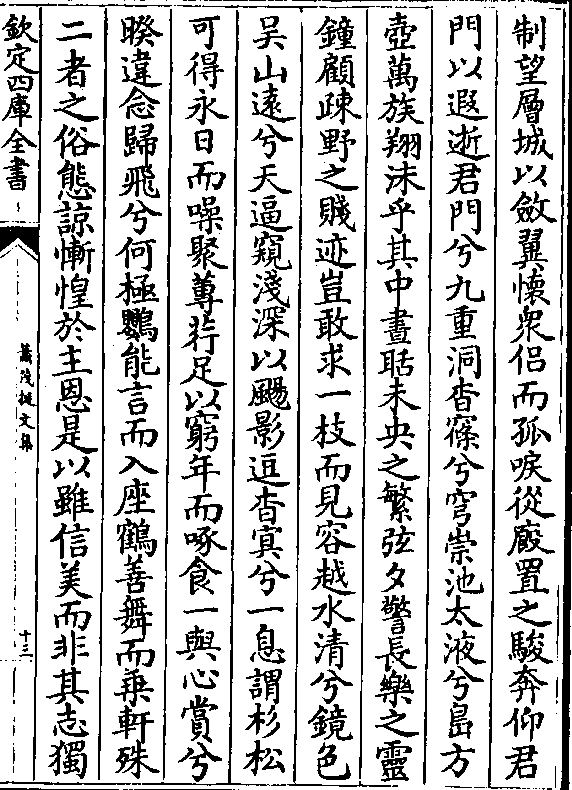 制望層城以斂翼懷衆侶而孤唳從廄置之駿奔仰君
門以遐逝君門兮九重洞杳篠兮穹崇池太液兮島方
壺萬族翔沬乎其中晝聒未央之繁弦夕警長樂之靈
鐘顧疎野之賤迹豈敢求一枝而見容越水清兮鏡色
吴山遠兮天逼窺淺深以颺影逗杳冥兮一息謂杉松
可得永日而噪聚蓴荇足以窮年而啄食一與心賞兮
暌違念歸飛兮何極鸚能言而入座鶴善舞而乗軒殊
二者之俗態諒慚惶於主恩是以雖信美而非其志獨
欽定四庫全書
蕭茂挺文集
十三